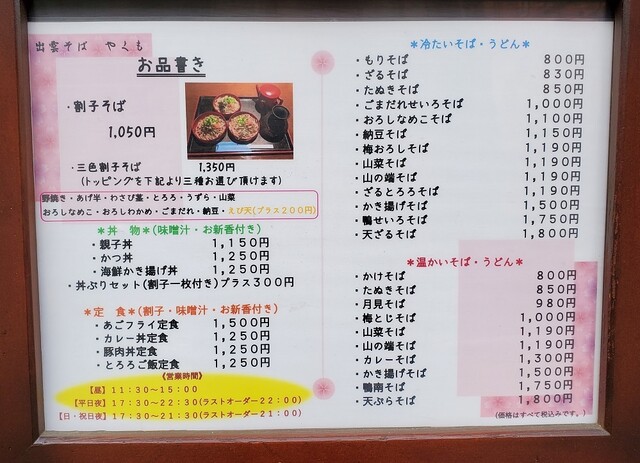 出雲そば やくも
お品書き
・割子そば
1,050円
・三色割子そば 1,350円
(トッピングを下記より三種お選び頂けます)
野焼き・あげ半・わさび茎・とろろ・うずら・山菜
おろしなめこ・おろしわかめ・ごまだれ・納豆・えび天(プラス200円)
*丼 物*(味噌汁・お新香付き)
・親子丼 1,150円
・かつ丼 1,250円
・海鮮かき揚げ丼 1,250円
・丼ぶりセット(割子一枚付き)プラス300円
*定 食*(割子・味噌汁・お新香付き)
・あごフライ定食 1,500円
・カレー丼定食 1,250円
・豚肉丼定食 1,250円
・とろろご飯定食 1,250円
《営業時間》
【昼】11:30~15:00
【平日夜】17:30~22:30(ラストオーダー22:00)
【日・祝日夜】17:30~21:30(ラストオーダー21:00)
*冷たいそば・うどん*
・もりそば 800円
・ざるそば 830円
・たぬきそば 850円
・ごまだれせいろそば 1,000円
・おろしなめこそば 1,100円
・納豆そば 1,150円
・梅おろしそば 1,190円
・山菜そば 1,190円
・山の端そば 1,190円
・ざるとろろそば 1,190円
・かき揚げそば 1,500円
・鴨せいろそば 1,750円
・天ざるそば 1,800円
*温かいそば・うどん*
・かけそば 800円
・たぬきそば 850円
・月見そば 980円
・梅とじそば 1,000円
・山菜そば 1,190円
・山の端そば 1,190円
・カレーそば 1,300円
・かき揚げそば 1,500円
・鴨南そば 1,750円
・天ぷらそば 1,800円
(価格はすべて税込みです。)